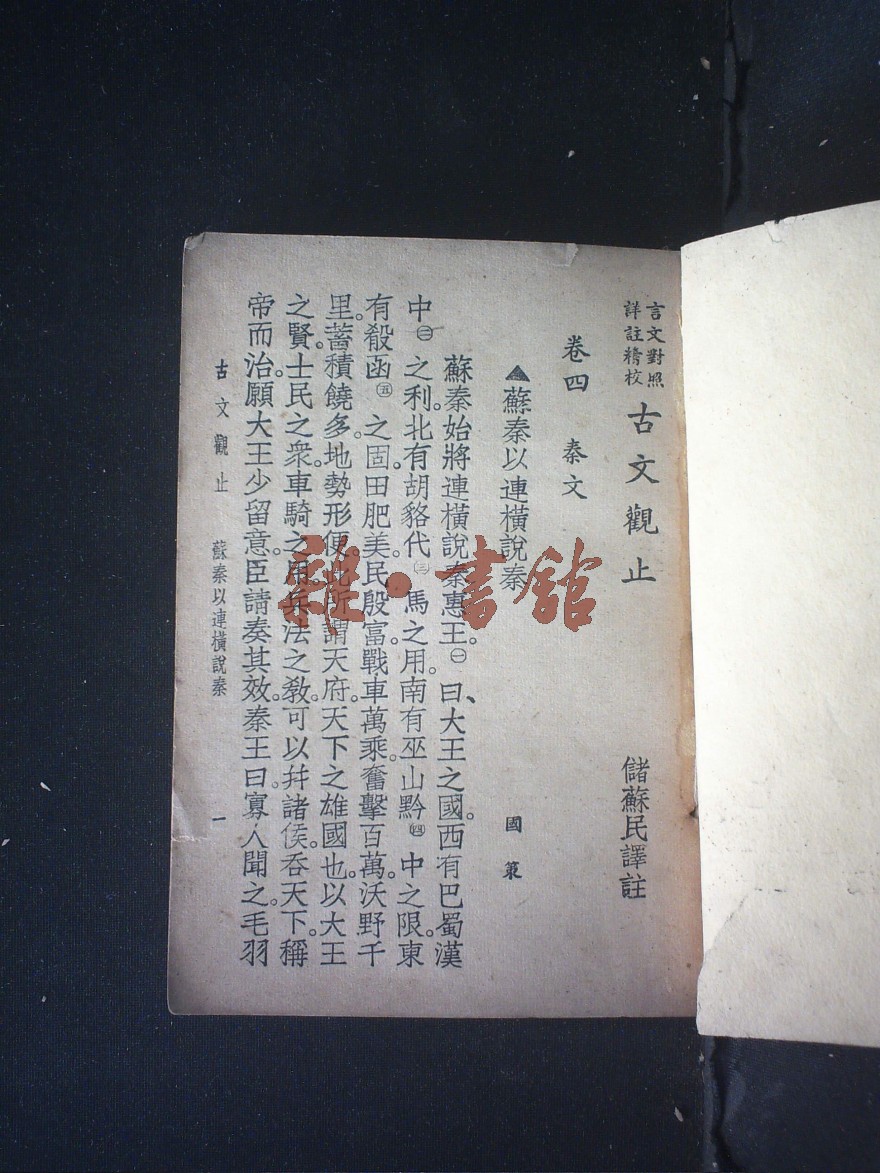 言文對照
詳註精校
古文觀止
儲蘇民譯註
卷四 秦文
▲蘇秦以連橫說秦 國策
蘇秦始將連橫說秦惠王。㊀曰、大王之國。西有巴蜀漢
中㊁之利。北有胡貉代㊂馬之用。南有巫山黔㊃中之限。東
有殽函㊄之固。田肥美。民殷富。戰車萬乘。奮擊百萬。沃野千
里。蓄積饒多。地勢形便。此所謂天府。天下之雄國也。以大王
之賢。士民之衆。車騎之用。兵法之教。可以幷諸侯。吞天下。稱
帝而治。願大王少留意。臣請奏其效。秦王曰。寡人聞之。毛羽
古文觀止 蘇秦以連橫說秦 一
雜·書館